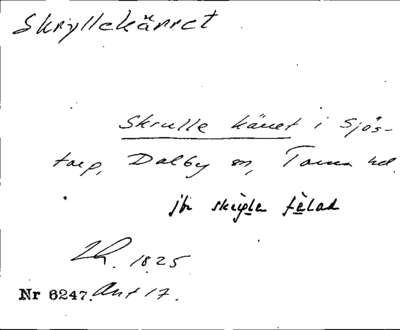 Skryllekärret
Skrulle käret i Sjös-
torp, Dalby sn, Torna hd.
jfr skrylle fälad
1825
Nr 6247. Akt 17.